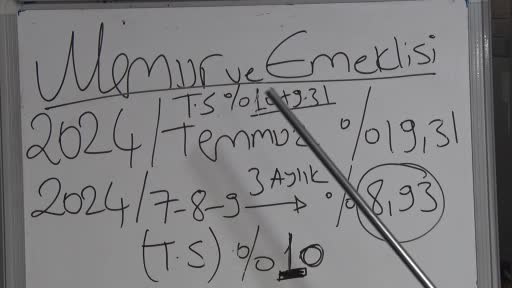 Memur ve Emeklisi
T.S %10+9.31
2024/Temmuz %19,31
2024/7-8-9 → 3 Aylık %8,93
(T.S) %10